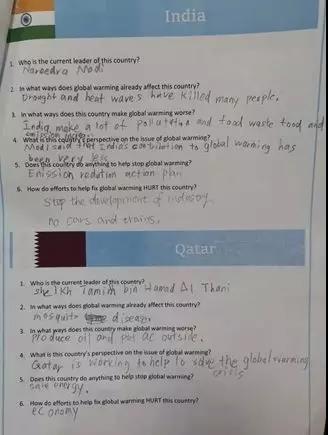 India
1. Who is the current leader of this country?
Narendra Modi
2. In what ways does global warming already affect this country?
Drought and heat waves have killed many people.
3. In what ways does this country make global warming worse?
India make a lot of pollution and food waste food and
emission
4. What is this country's perspective on the issue of global warming?
Modi said that Indias contribution to global warming has
been very less
5. Does this country do anything to help stop global warming?
Emission redution action plan
6. How do efforts to help fix global warming HURT this country?
Stop the development of indusoy.
no cars and trains.
Qatar
1. Who is the current leader of this country?
sheikh Tamim bin Hamad Al Thani
2. In what ways does global warming already affect this country?
mosquito disease.
3. In what ways does this country make global warming worse?
Produce oil and put AC outside.
4. What is this country's perspective on the issue of global warming?
Qatar is working to help to solve the global warming
crisis
5. Does this country do anything to help stop global warming?
save energy.
6. How do efforts to help fix global warming HURT this country?
economy